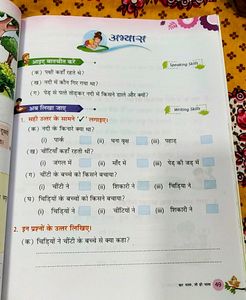 अभ्यास
आइए बातचीत करें
Speaking Skills
(क) पक्षी कहाँ रहते थे?
(ख) नदी में कौन गिर गया था?
(ग) पेड़ से पत्ते तोड़कर नदी में किसने डाले और क्यों?
अब लिखा जाए
Writing Skills
1. सही उत्तर के सामने '✓' लगाइए।
(क) नदी के किनारे क्या था?
(i) पार्क (ii) घना वृक्ष (iii) पहाड़
(ख) चींटियाँ कहाँ रहती थीं?
(i) जंगल में (ii) माँद में (iii) पेड़ की जड़ में
(ग) चिड़िया के बच्चे को किसने बचाया?
(i) चींटी ने (ii) शिकारी ने (iii) चिड़िया ने
(घ) चिड़ियों के बच्चों को किसने बचाया?
(i) चिड़ियों ने (ii) चींटियों ने (iii) शिकारी ने
2. इन प्रश्नों के उत्तर लिखिए।
(क) चिड़ियों ने चींटी के बच्चे से क्या कहा?
49